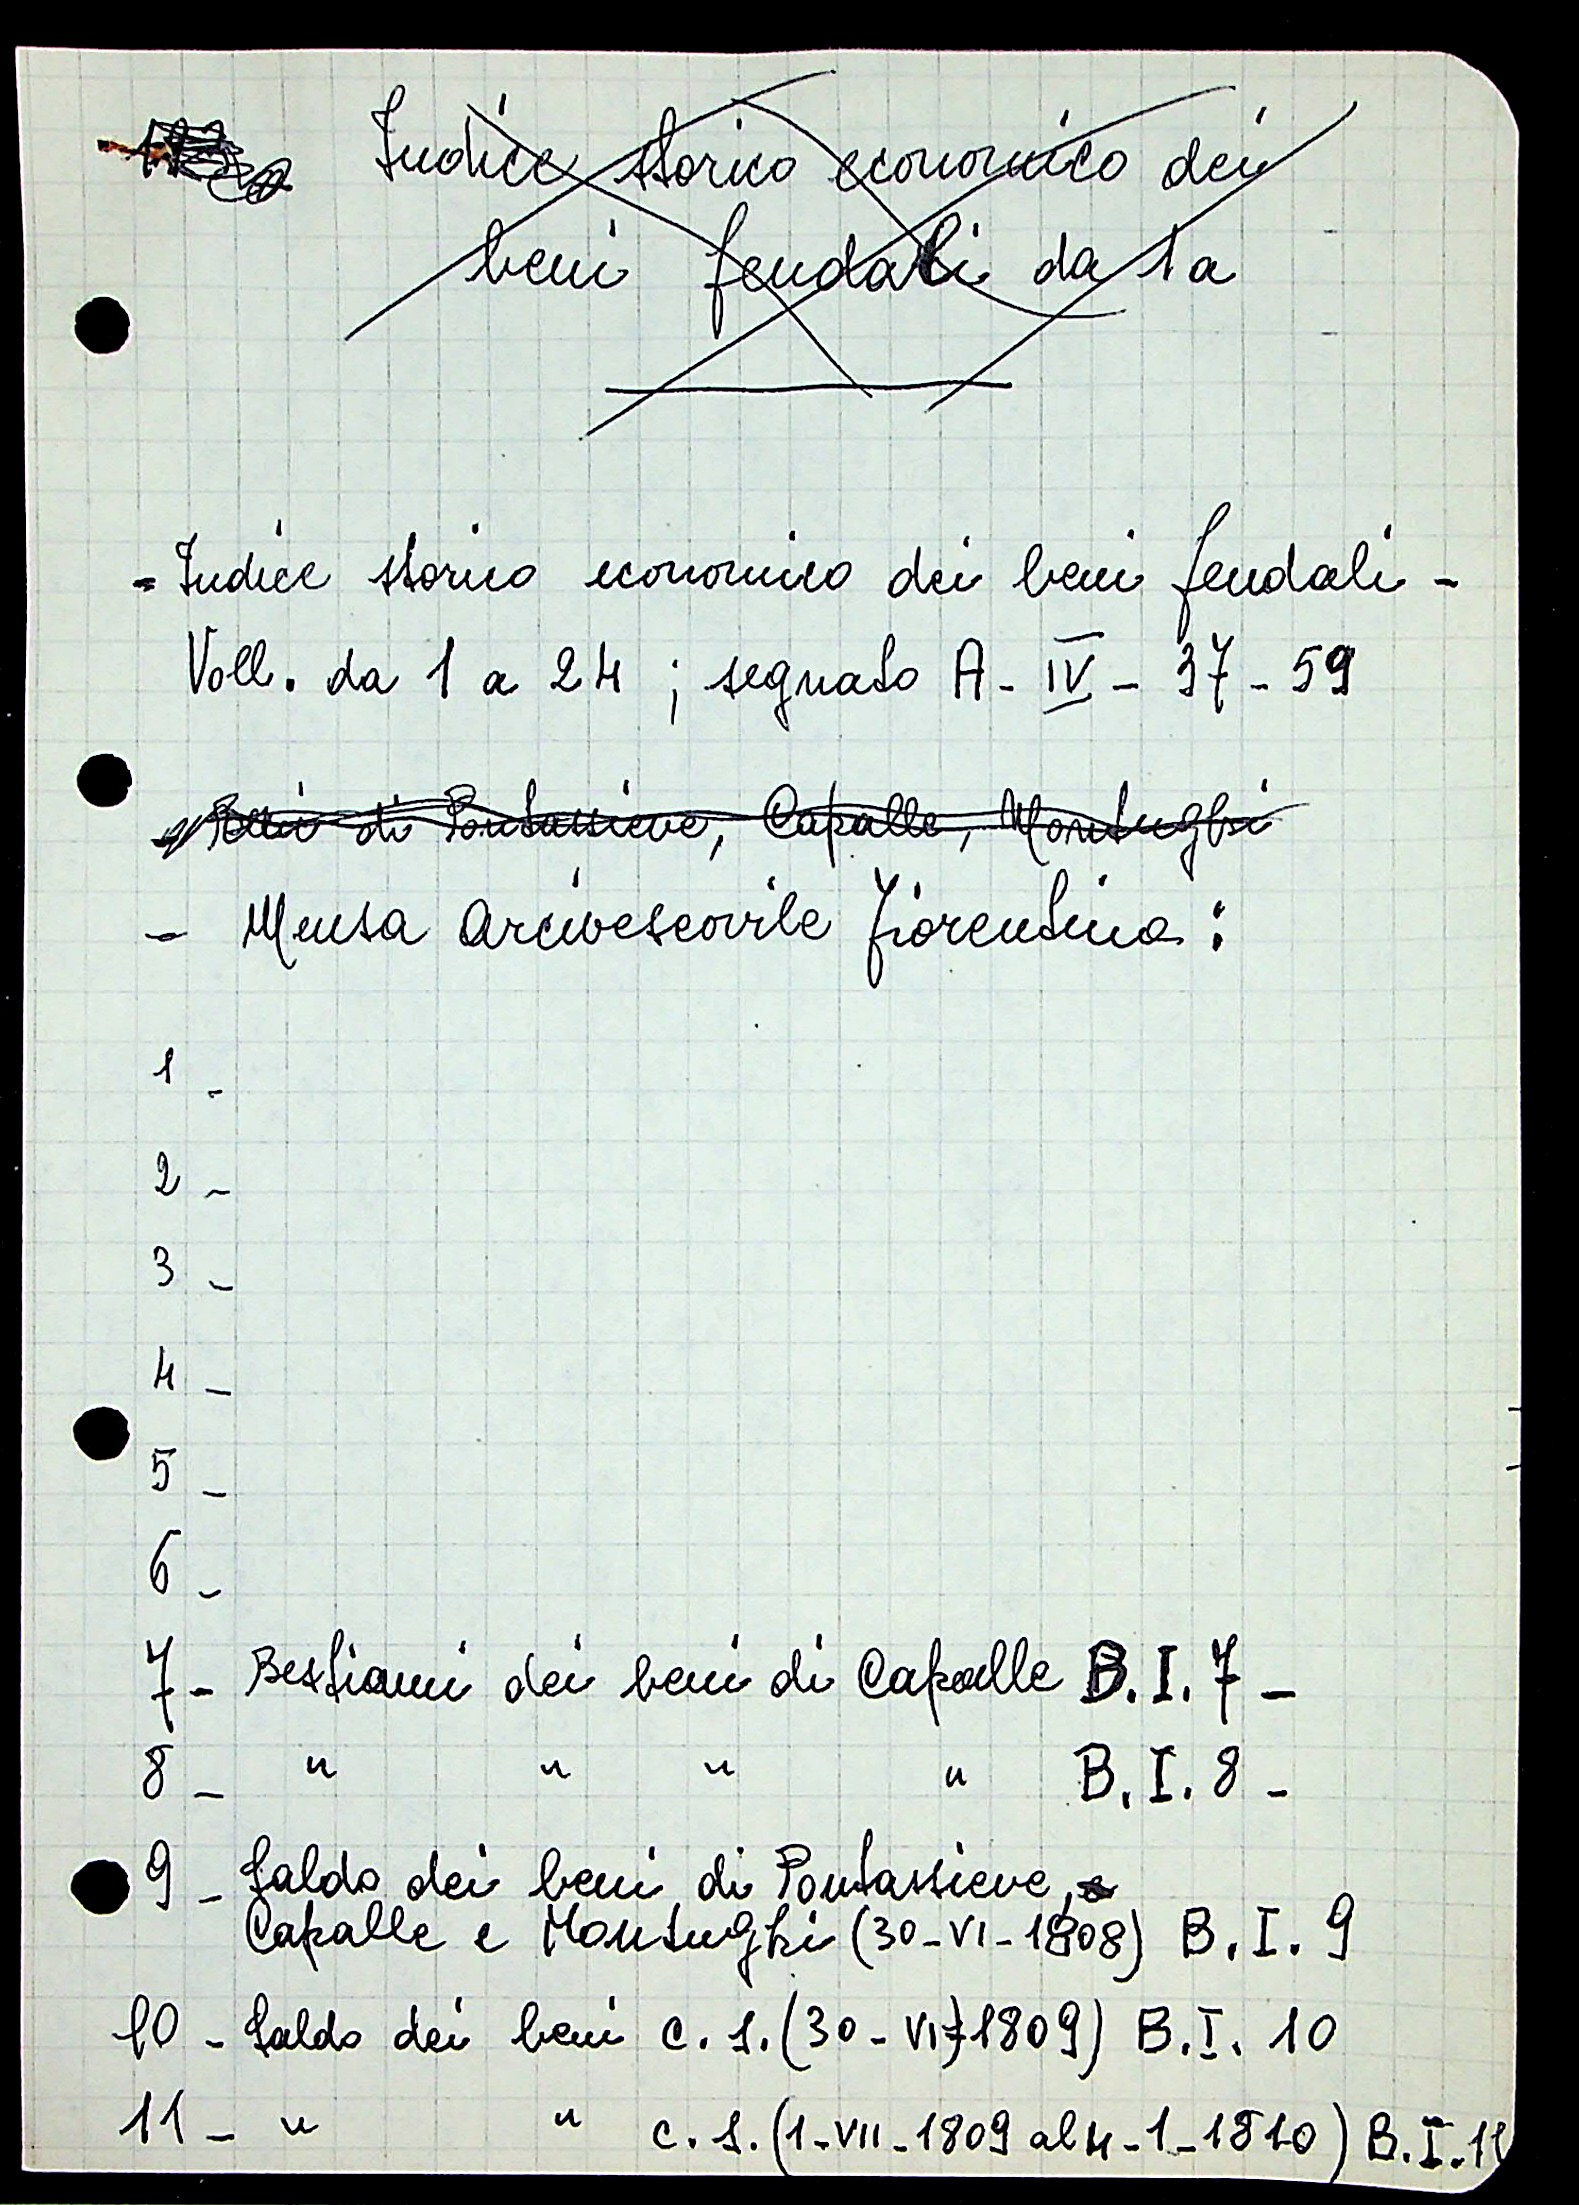 Indice storico economico dei
beni feudali da 1 a
- Indice storico economico dei beni feudali -
Voll. da 1 a 24 ; segnato A - IV - 37 - 59
Beni di Pontassieve, Capalle, Montughi
- Mensa Arcivescovile Fiorentina :
1 -
2 -
3 -
4 -
5 -
6 -
7 - Bestiami dei beni di Capalle B. I. 7 -
8 - " " " " B. I. 8 -
9 - Saldo dei beni di Pontassieve, e
Capalle e Montughi (30-VI-1808) B. I. 9
10 - Saldo dei beni c. s. (30-VI-1809) B. I. 10
11 - " " c. s. (1-VII-1809 al 4-1-1810) B. I. 11